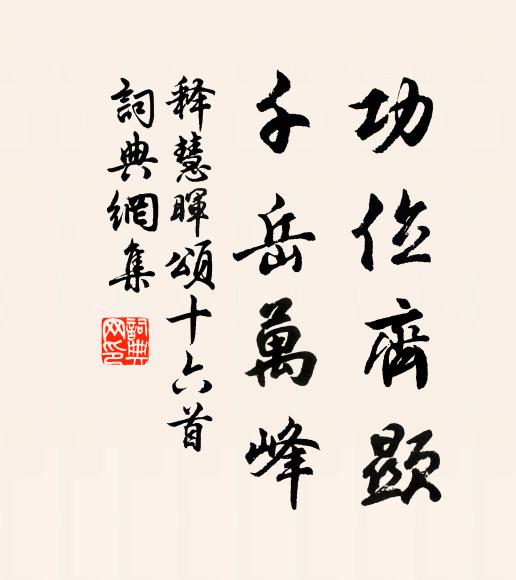 功位齊顯
千岳萬峰
释慧暉頌十六首
詞典網集
詞典网印